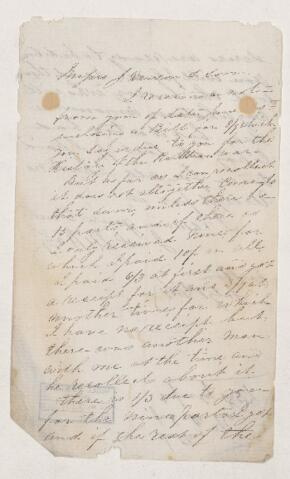 Messrs J Vernon & Son
I received a note
from you of date June
enclosing a Bill for 5/3 which
you say is due to you for the
History of the Kaffir war
But as far as I can recollect
it does not altogether correspond
that sum, unless there be
15 parts, and if there is
I only received nine for
which I paid 10/- in all
I paid 6/3 at first and got
a receipt for it and 3/9 at
another time, for which
I have no receipt but
there was another man
with me at the time and
he recollects about it
there is 1/3 due to you
for the nine parts I got
and if the rest of the